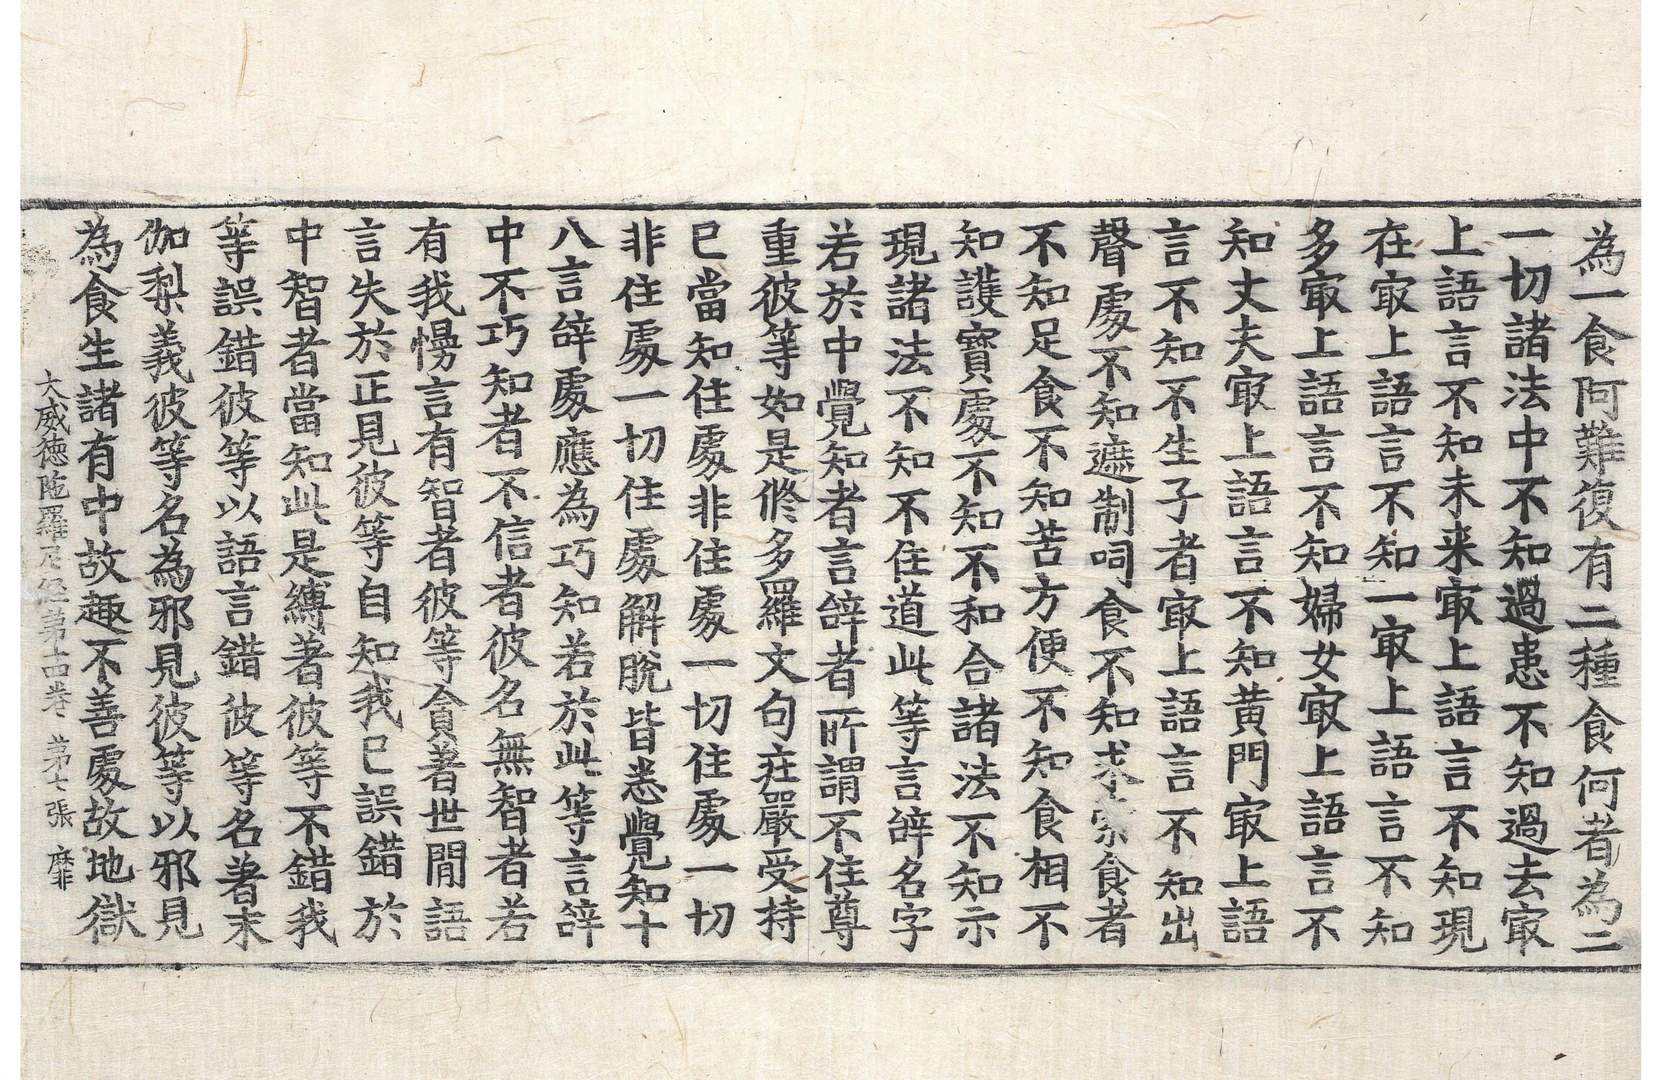 為一食阿難復有二種食何者為二
一切諸法中不知過患不知過去㝡
上語言不知未来㝡上語言不知現
在㝡上語言不知一㝡上語言不知
多㝡上語言不知婦女㝡上語言不
知丈夫㝡上語言不知黄門㝡上語
言不知不生子者㝡上語言不知出
聲處不知遮制呞食不知求索食者
不知足食不知苦方便不知食相不
知護寶處不知不和合諸法不知示
現諸法不知不住道此等言辝名字
若於中覺知者言辝者所謂不住尊
重彼等如是修多羅文句莊嚴受持
已當知住處非住處一切住處一切
非住處一切住處解脫皆悉覺知十
八言辝處應為巧知若於此等言辝
中不巧知者不信者彼名無智者若
有我慢言有智者彼等貪著世間語
言失於正見彼等自知我已誤錯於
中智者當知此是縛著彼等不錯我
等誤錯彼等以語言錯彼等名著末
伽梨義彼等名為邪見彼等以邪見
為食生諸有中故趣不善處故地獄
大威德陁羅尼経第十四卷 第七張 靡